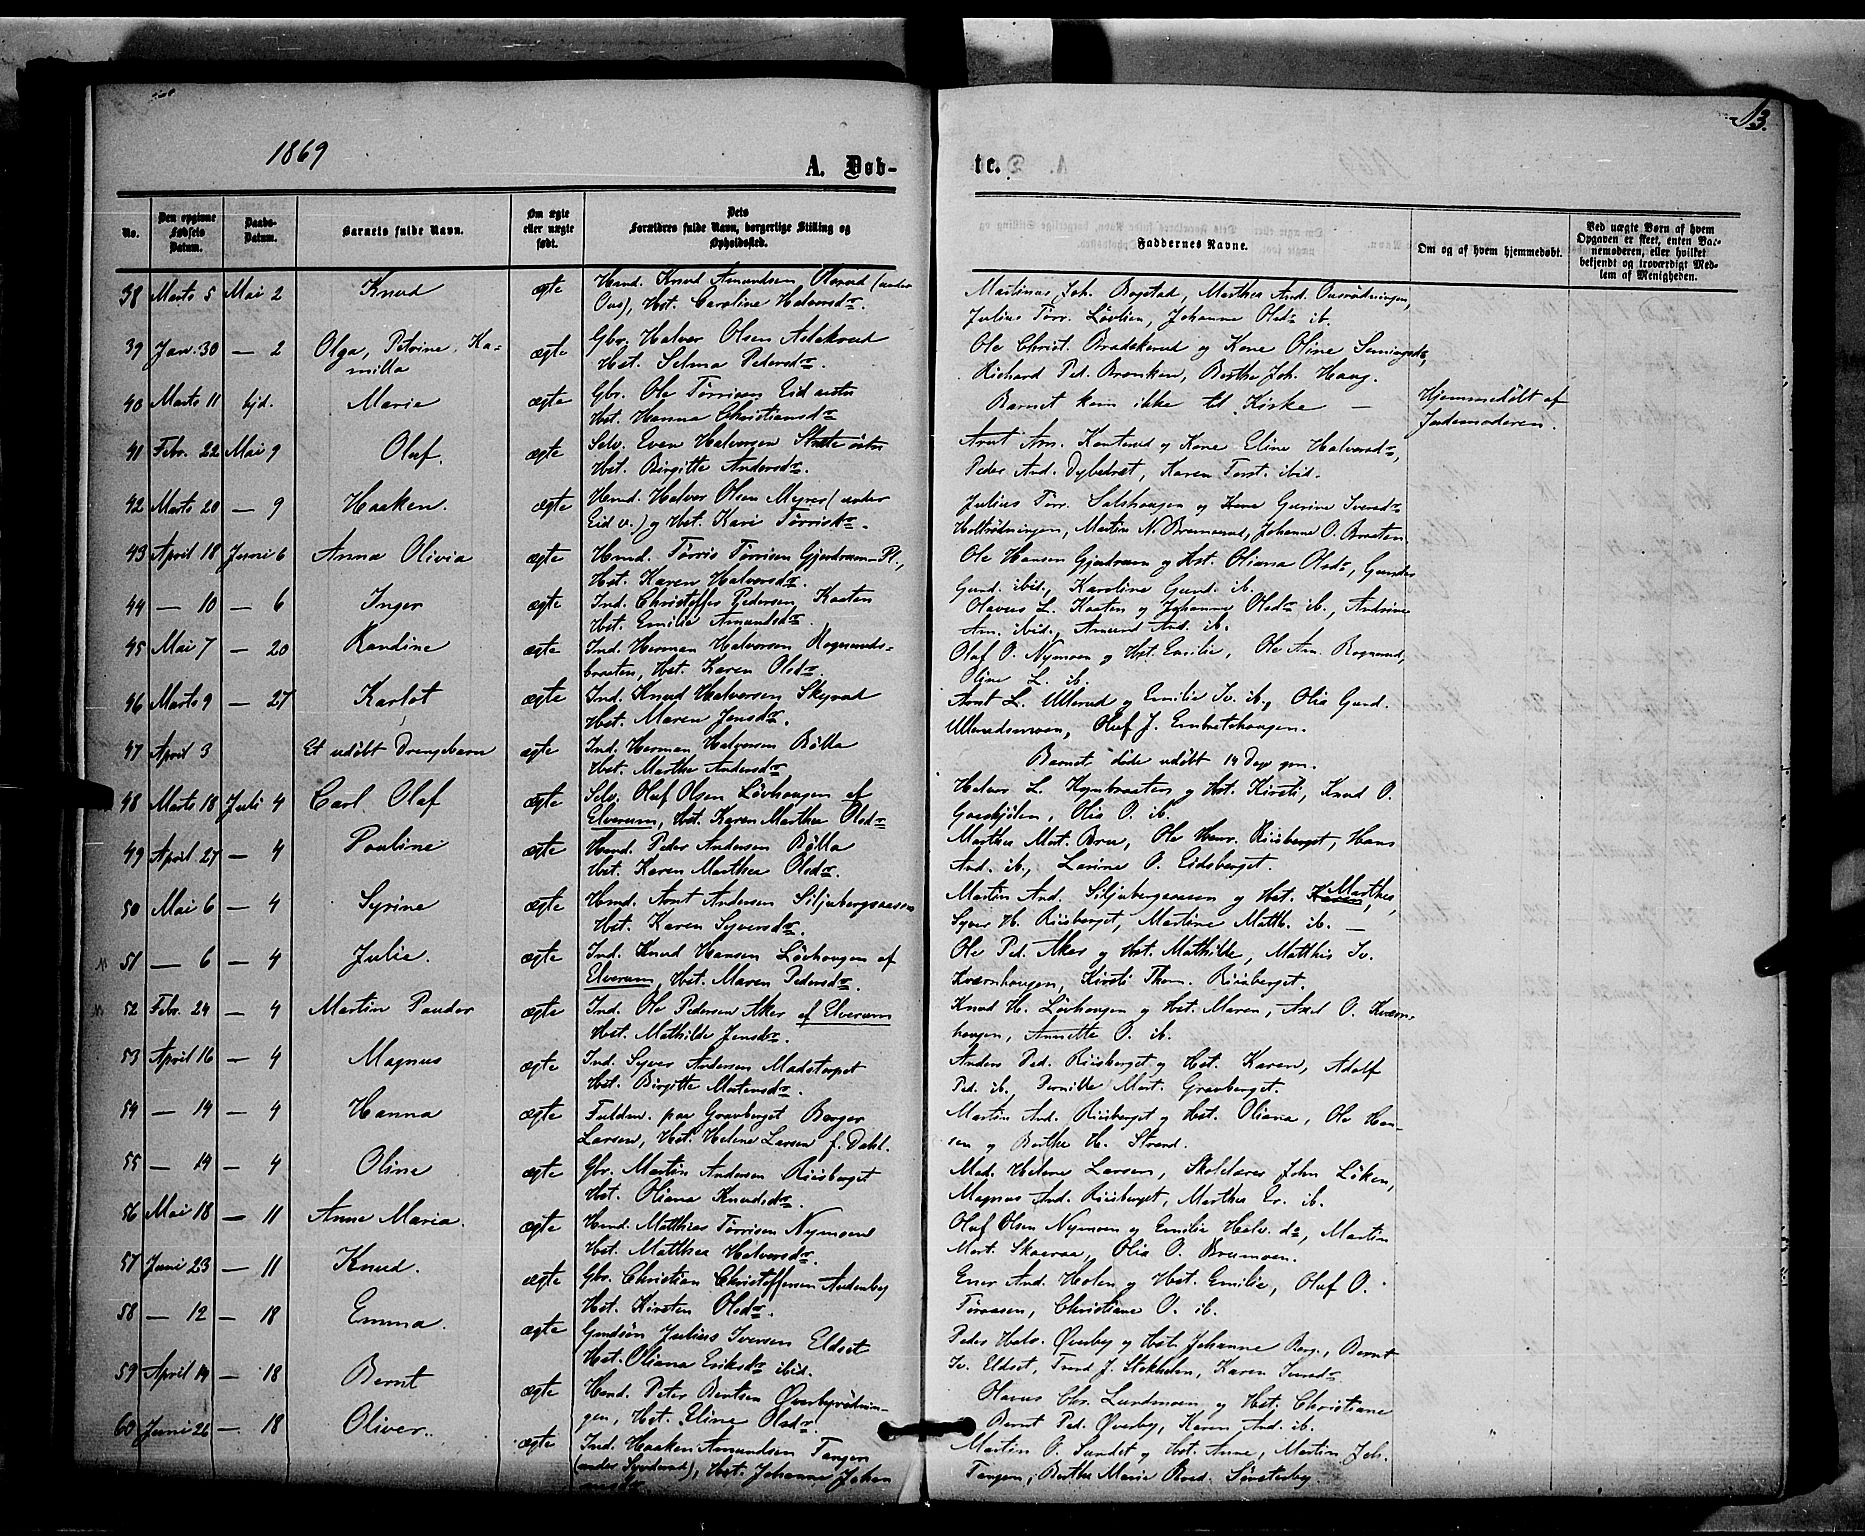 1869
13.
A. Døb-
te.
No.
Den opgivne Fødsels Datum.
Daabs-Datum.
Barnets fulde Navn.
Om ægte eller uægte født.
Dets Forældres fulde Navn, borgerlige Stilling og Opholdssted.
Faddernes Navne.
Om og af hvem hjemmedøbt.
Ved uægte Børn af hvem Opgaven er skeet, enten Barnemoderen, eller hvilket bekjendt og troværdigt Medlem af Menigheden.
38 Marts 5 Mai 2 Knud ægte Hmd. Knud Amundsen (under
Hst. Caroline Halvorsdr.
Martinus Joh. Bogstad, Marthea And.
Julius Tørr. Løvlien, Johanne Olsdr ib.
39 Jan. 30 — 2 Olga, Petrine, Ka-
milla ægte Gbr. Halver Olsen
Hst. Selma Pedersdr.
Ole Christ. Bradekerud og Kone Oline
Richard Ped. Brænken, Berthe Joh. Haug.
40 Marts 11 hjd. Marie ægte Gbr. Ole Tørrisen Eid østn
Hst. Hanna Christiansdr
Barnet kom ikke til Kirke —
Hjemmedøbt af
Jordemoderen.
41 Febr. 22 Mai 9 Oluf. ægte Selv. Even Halvorsen
Hst. Birgitte Andersdr
Arnt Am. Konterud og Kone Eline Halvorsdr,
Peder And. Dybedræt, Karen Torst. ibid.
42 Marts 20 — 9 Haaken. ægte Hmd. Halvor Olsen Myrer (under
Eid v.) og Hst. Kari Tørrisdr.
Julius Tørr. Salshaugen og Kone Gurine Iversdr
Holtrydningen, Martin N. Johanne O. Braaten
43 April 18 Juni 6 Anna Olivia ægte Hmd. Tørris Tørrisen Gjerdrum-Pl.,
Hst. Karen Halvorsdr.
Ole Hansen Gjerdrum og Hst. Oliana Olsdr, Gunder
Gund. ibid., Karoline Gund. ib.
44 — 10 — 6 Inger ægte Ind. Christoffer Pedersen Kaaten
Hst. Emilie Amundsdr.
Olavus L. Kaaten og Johanne Olsdr ib., Andrine
Am. ibid., Amund And. ib.
45 Mai 7 — 20 Randine ægte Ind. Herman Halvorsen Rognunds-
braaten, Hst. Karen Olsdr.
Oluf O. Nymoen og Hst. Emilie, Ole Am.
Oline L. ib.
46 Marts 9 — 27 Karlot ægte Ind. Knud Halvorsen
Hst. Maren Jensdr.
Arnt L. Ullerud og Emilie Iv. ib., Olia Gund.
Ullerudsmoen, Oluf J. Embretshaugen.
47 April 3 Et udøbt Drengebarn ægte Ind. Herman Halvorsen Bølla
Hst. Marthe Andersdr.
Barnet døde udøbt 14 Dage gm.
48 Marts 18 Juli 4 Carl Olaf ægte Selv. Oluf Olsen Løvhaugen af
Elverum, Hst. Karen Marthea Olsdr
Halvor L. og Hst. Kirsti, Knud O.
Olia O. ib.
49 April 27 — 4 Pauline ægte Hmd. Peder Andersen Bølla
Hst. Karen Marthea Olsdr.
Marthea Mart. Bru, Ole Henr. Riisberget, Hans
And. ib., Lavine O. Eidsberget.
50 Mai 6 — 4 Syrine ægte Hmd. Arnt Andersen Siljubergsaasen
Hst. Karen Syversdr.
Martin And. Siljubergsaasen og Hst. Karen Marthea,
Syver H. Riisberget, Martine Matth. ib. —
51 — 6 — 4 Julie. ægte Ind. Knud Hansen Løvhaugen af
Elverum, Hst. Maren Pedersdr.
Ole Ped. Aker og Hst. Mathilde, Matthis Iv.
Kværnhaugen, Kirsti Thom. Riisberget.
52 Febr. 24 — 4 Martin Peuder ægte Ind. Ole Pedersen Aker af Elverum
Hst. Mathilde Jensdr.
Knud H. Løvhaugen og Hst. Maren, Axel O. Kværn-
haugen, Annette O. ib.
53 April 16 — 4 Magnus ægte Ind. Syver Andersen Madstorpet
Hst. Birgitte Mortensdr.
Anders Ped. Riisberget og Hst. Karen, Adolf
Ped. ib. Pernille Mort. Gravberget.
54 — 14 — 4 Hanna ægte Fuldm. paa Gravberget Berger
Larsen, Hst. Helene Larsen f. Dahl.
Martin And. Riisberget og Hst. Oliana, Ole Han-
sen og Berthe H. Strand.
55 — 14 — 4 Oline ægte Gbr. Martin Andersen Riisberget
Hst. Oliana Knudsdr.
Mad. Helene Larsen, Skolelærer John Løken,
Magnus And. Riisberget, Marthea Er. ib.
56 Mai 18 — 11 Anne Maria. ægte Hmd. Matthias Tørrisen Nymoen
Hst. Matthea Halvorsdr.
Oluf Olsen Nymoen og Emilie Halv. dr, Martin
Mort. Skaaraa, Olia O. Brumoen.
57 Juni 23 — 11 Knud. ægte Gbr. Christian Christoffersen Audenby
Hst. Kirsten Olsdr.
Ener And. Holen og Hst. Emilie, Oluf O.
Tøraasen, Christiane O. ib.
58 — 12 — 18 Emma. ægte Grdsøn Julius Iversen Eldset
Hst. Oliana Eriksdr ibid.
Peder Halv. Øverby og Hst. Johanne Berg., Bernt
Iv. Eldset, Trond J. Stokholm, Karen Iversdr
59 April 14 — 18 Bernt ægte Hmd. Peter Berntsen Øverbyrydnin-
gen, Hst. Eline Olsdr.
Olavus Chr. Lundmoen og Hst. Christiane
Bernt Ped. Øverby, Karen And. ib.
60 Juni 26 — 18 Oliver. ægte Ind. Haaken Amundsen Tangen
Hst. Johanne Johan
Martin O. Sundet og Hst. Anne, Martin Joh.
Tangen, Berthe Maria Sønsterby.